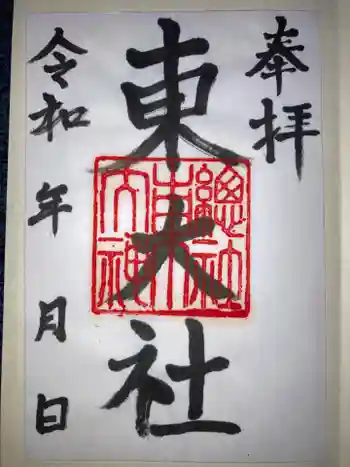 奉拝
東大社
令和 年 月 日